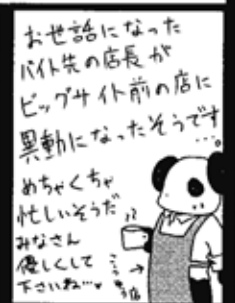 お世話になった
バイト先の店長が
ビッグサイト前の店に
異動になったそうです
…。
めちゃくちゃ
忙しいそうだ
みなさん
優しくして
下さいね…♥